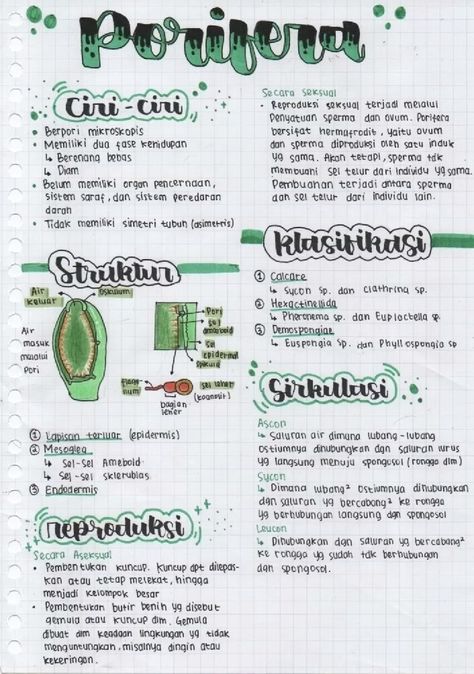 Porifera
Ciri-ciri
• Berpori mikroskopis
• Memiliki dua fase kehidupan
↳ Berenang bebas
↳ Diam
• Belum memiliki organ pencernaan,
sistem saraf, dan sistem peredaran
darah
• Tidak memiliki simetri tubuh (asimetris)
Struktur
Air
keluar
Oskulum
Air
masuk
melalui
Pori
Pori
sel
ameboid
sel
epidermal
spikula
flage
llum
sel leher
(koanosit)
bagian
leher
① Lapisan terluar (epidermis)
② Mesoglea
↳ Sel-sel Ameboid
↳ Sel-sel skleroblas
③ Endodermis
reproduksi
Secara Aseksual
• Pembentukan kuncup. Kuncup dpt dilepas-
kan atau tetap melekat, hingga
menjadi kelompok besar
• Pembentukan butir benih yg disebut
gemula atau kuncup dlm. Gemula
dibuat dlm keadaan lingkungan yg tidak
menguntungkan, misalnya dingin atau
kekeringan.
Secara Seksual
• Reproduksi seksual terjadi melalui
Penyatuan sperma dan ovum. Porifera
bersifat hermafrodit, yaitu ovum
dan sperma diproduksi oleh satu induk
yg sama. Akan tetapi, sperma tdk
membuahi sel telur dari individu yg sama.
Pembuahan terjadi antara sperma
dan sel telur dari individu lain.
Klasifikasi
① Calcare
↳ Sycon sp. dan Clathrina sp.
② Hexactinellida
↳ Pheronema sp. dan Euploctella sp.
③ Demospongiae
↳ Euspongia sp. dan Phyllospongia sp
Sirkulasi
Ascon
↳ Saluran air dimana lubang-lubang
ostiumnya dihubungkan dgn saluran lurus
yg langsung menuju spongosol (rongga dlm)
Sycon
↳ Dimana lubang² ostiumnya dihubungkan
dgn saluran yg bercabang² ke rongga
yg berhubungan langsung dgn spongosol
Leucon
↳ Dihubungkan dgn saluran yg bercabang²
ke rongga yg sudah tdk berhubungan
dgn spongosol.